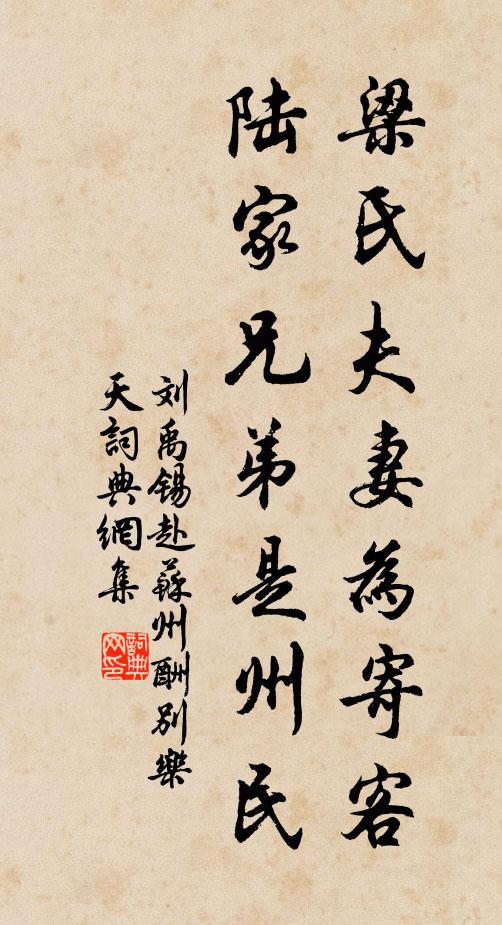 梁氏夫妻為寄客
陆家兄弟是州民
刘禹锡赴蘇州酬別樂
天詞典網集
詞典网印